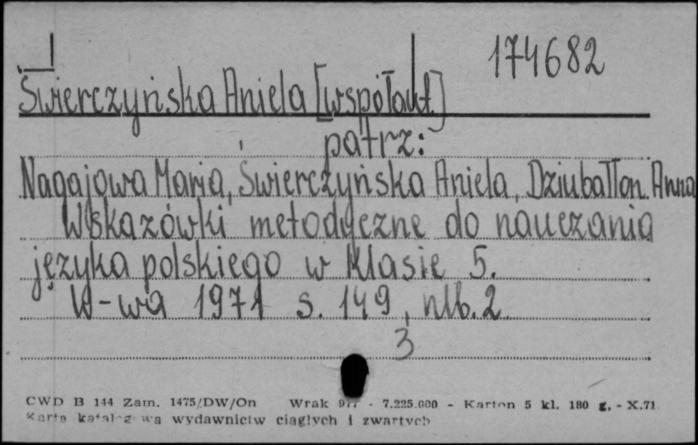 174682
Świerczyńska Aniela [współaut.]
patrz:
Nagajowa Maria, Świerczyńska Aniela, Dziubałton Anna
Wskazówki metodyczne do nauczania
języka polskiego w klasie 5.
W-wa 1971 s. 149, nlb. 2
3
CWD B 144 Zam. 1475/DW/On Wrak - 7.225.000 - Karton 5 kl. 180 g. - X.71
Karta katalogowa wydawnictw ciągłych i zwartych